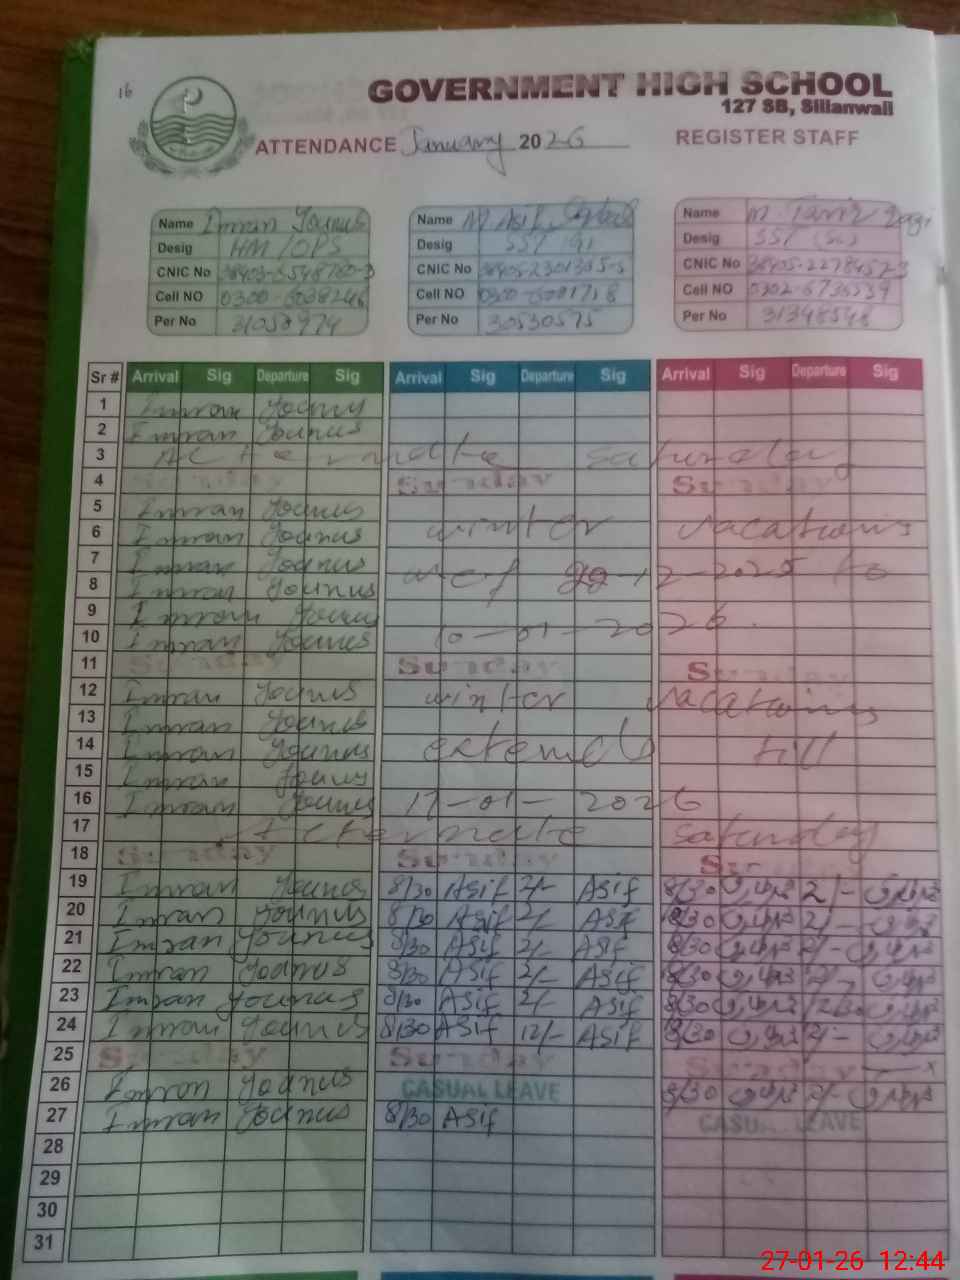 16
GOVERNMENT HIGH SCHOOL
127 SB, Sillanwali
ATTENDANCE January 2026 REGISTER STAFF
Name Imran Younus Name M Asif Iqbal Name M. Tanvir
Desig HM/OPS Desig SST Desig SST (Sc)
CNIC No CNIC No CNIC No
Cell NO Cell NO Cell NO
Per No Per No 30530575 Per No 31348548
Sr # Arrival Sig Departure Sig Arrival Sig Departure Sig Arrival Sig Departure Sig
1 Imran Younus
2 Imran Younus
3 Alternate Saturday
4 Sunday Sunday Sunday
5 Imran Younus
6 Imran Younus winter vacations
7 Imran Younus
8 Imran Younus wef 12-2025 to
9 Imran Younus
10 Imran Younus 10-01-2026.
11 Sunday Sunday Sunday
12 Imran Younus winter vacations
13 Imran Younus
14 Imran Younus extended till
15 Imran Younus
16 Imran Younus 17-01-2026
17 Alternate Saturday
18 Sunday Sunday Sunday
19 Imran Younus 8/30 Asif 2/- Asif 8/30 2/-
20 Imran Younus 8/30 Asif 2/- Asif 8/30 2/-
21 Imran Younus 8/30 Asif 2/- Asif 8/30 2/-
22 Imran Younus 8/30 Asif 2/- Asif 8/30 2/-
23 Imran Younus 8/30 Asif 2/- Asif 8/30
24 Imran Younus 8/30 Asif 12/- Asif 8/30 2/-
25 Sunday Sunday Sunday
26 Imran Younus CASUAL LEAVE 8/30 2/-
27 Imran Younus 8/30 Asif CASUAL LEAVE
28
29
30
31
27-01-26 12:44